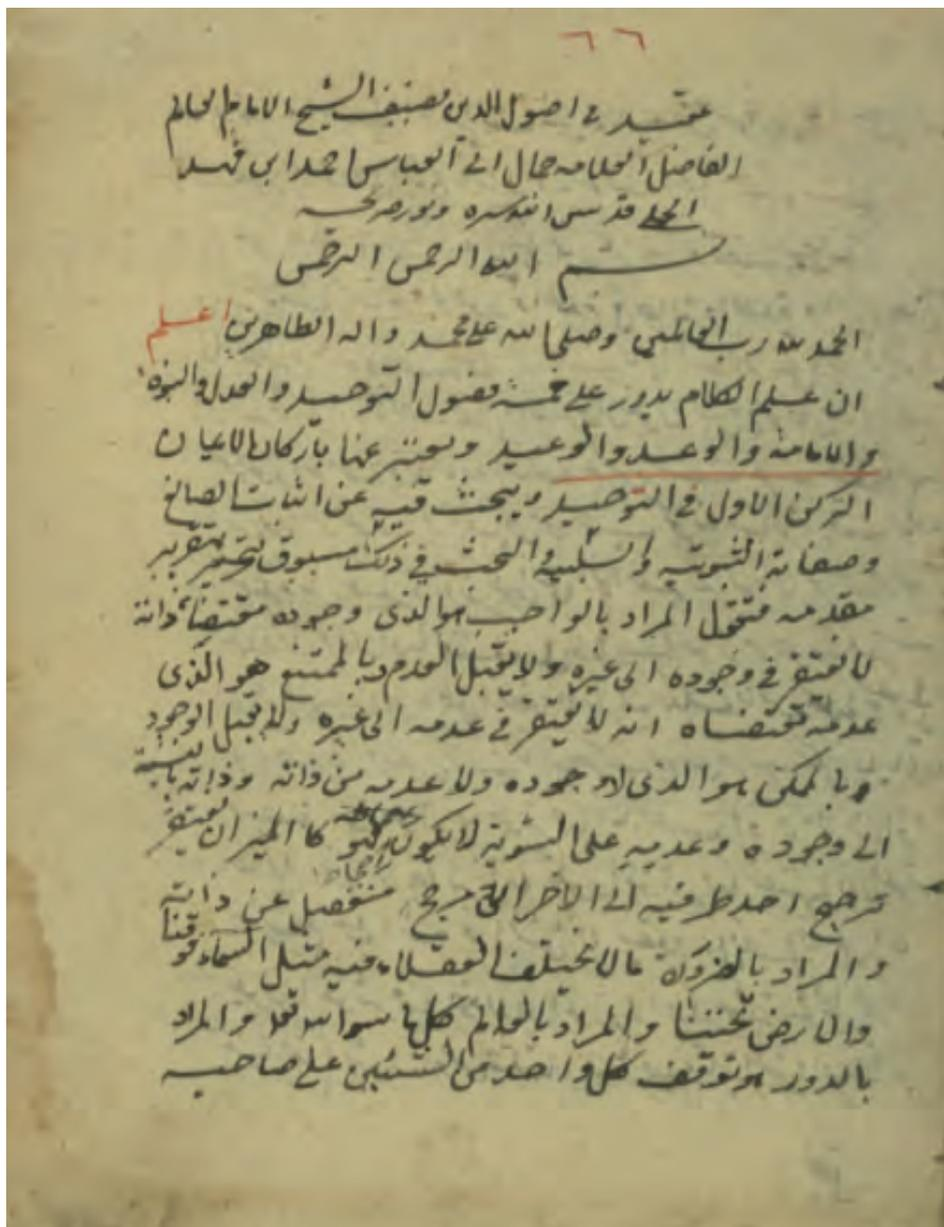 ٦٦
عقيد في اصول الدين تصنيف الشيخ الامام العالم
الفاضل العلامه جمال الدين ابى العباس احمد ابن فهد
الحلي قدس الله سره ونور ضريحه
بسم الله الرحمن الرحيم
الحمد لله رب العالمين وصلى الله على محمد واله الطاهرين اعلم
ان علم الكلام يدور على خمسة فصول التوحيد والعدل والنبوة
والامامة والوعد والوعيد ويعبر عنها باركان الايمان
الركن الاول في التوحيد ويبحث فيه عن اثبات الصانع
وصفاته الثبوتيه والسلبيه والبحث في ذلك مسبوق بتقرير
مقدمه فنقول المراد بالواجب هو الذى وجوده مقتضا ذاته
لا يفتقر في وجوده الى غيره ولا يقبل العدم وبالممتنع هو الذى
عدمه مقتضاه انه لا يفتقر في عدمه الى غيره ولا يقبل الوجود
وبالممكن هو الذى لا وجوده ولا عدمه من ذاته وذاته بالنسبة
الى وجوده وعدمه على السوية لا يكون كالميزان يفتقر
ترجيح احد طرفيه الى الاخر الى مرجح منفصل عن ذاته
والمراد بالضرورة ما لا يختلف العقلاء فيه مثل السماء فوقنا
والارض تحتنا والمراد بالعالم كل ما سوا الله تعالى والمراد
بالدور هو توقف كل واحد من الشيئين على صاحبه